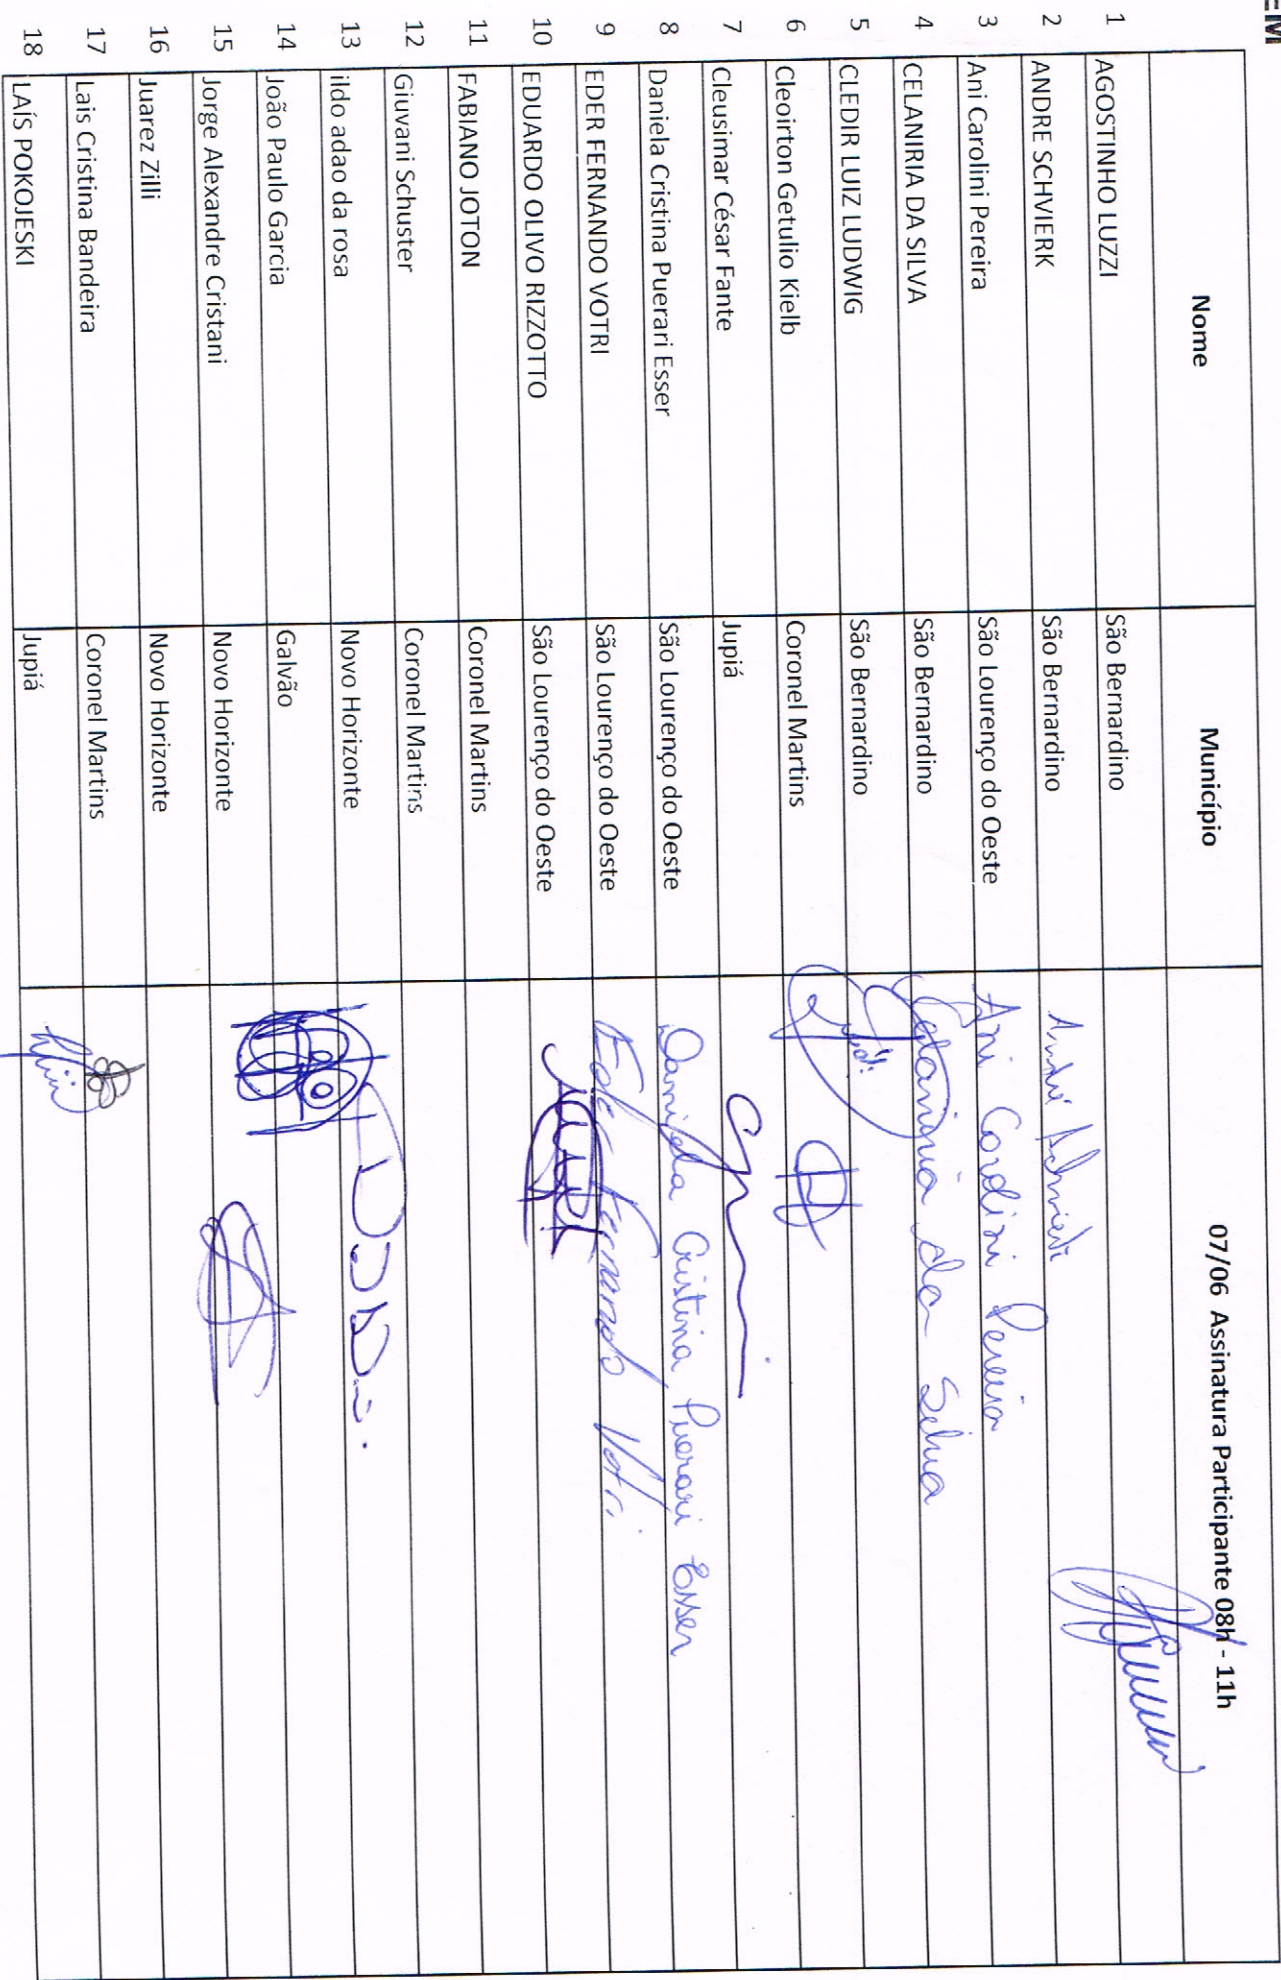 EM
Nome Município 07/06 Assinatura Participante 08h - 11h
1 AGOSTINHO LUZZI São Bernardino
2 ANDRE SCHVIERK São Bernardino André Schvierk
3 Ani Carolini Pereira São Lourenço do Oeste Ani Carolini Pereira
4 CELANIRIA DA SILVA São Bernardino Celaniria da Silva
5 CLEDIR LUIZ LUDWIG São Bernardino
6 Cleoirton Getulio Kielb Coronel Martins
7 Cleusimar César Fante Jupiá
8 Daniela Cristina Puerari Esser São Lourenço do Oeste Daniela Cristina Puerari Esser
9 EDER FERNANDO VOTRI São Lourenço do Oeste Eder Fernando Votri
10 EDUARDO OLIVO RIZZOTTO São Lourenço do Oeste
11 FABIANO JOTON Coronel Martins
12 Giuvani Schuster Coronel Martins
13 ildo adao da rosa Novo Horizonte
14 João Paulo Garcia Galvão
15 Jorge Alexandre Cristani Novo Horizonte
16 Juarez Zilli Novo Horizonte
17 Lais Cristina Bandeira Coronel Martins
18 LAÍS POKOJESKI Jupiá